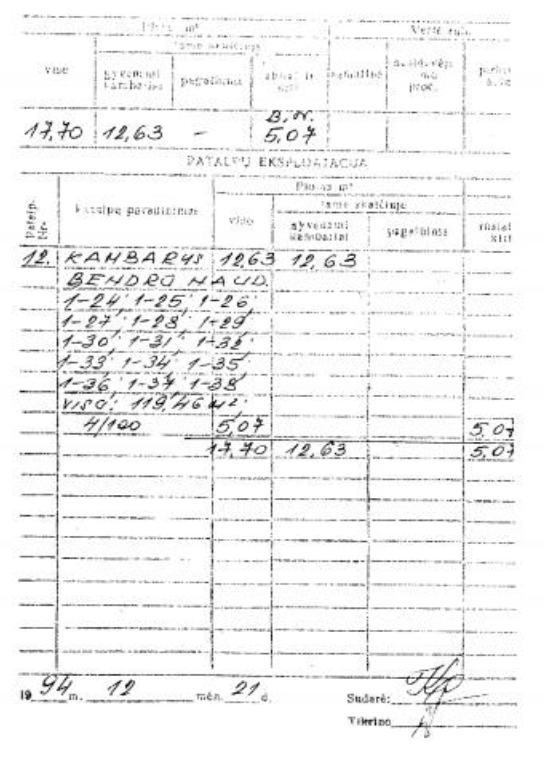 Plotas m²
tame skaičiuje
viso
gyvenami kambariai
pagalbinis
B.N.
17,70 12,63 – 5,07
PATALPŲ EKSPLOATACIJA
Plotas m²
Patalp. Nr.
Patalpų pavadinimas
viso
tame skaičiuje
gyvenami kambariai
pagalbinis
12. KAMBARYS 12,63 12,63
BENDRO NAUD.
1-24; 1-25; 1-26;
1-27; 1-28; 1-29;
1-30; 1-31; 1-32;
1-33; 1-34; 1-35
1-36; 1-37; 1-38
VISO: 119,46 M².
4/100 5,07 5,07
17,70 12,63 5,07
19 94 m. 12 mėn. 21 d.
Sudarė:
Tikrino